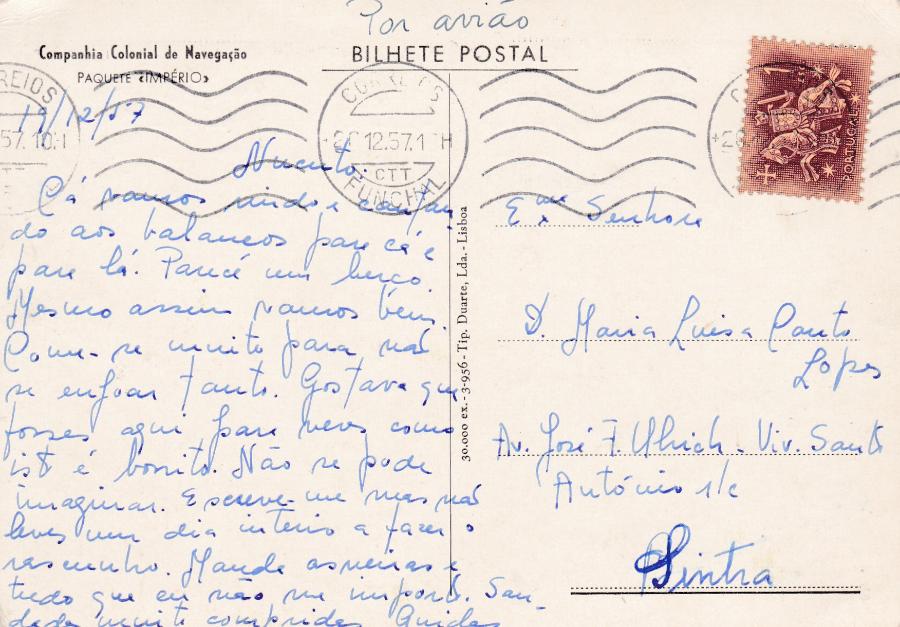 Por avião
Companhia Colonial de Navegação
PAQUETE «IMPÉRIO»
BILHETE POSTAL
19/12/57
CORREIOS
12.57.1
CTT
FUNCHAL
1
PORTUGAL
Cá vamos indo e
do aos balanços para cá e
para lá. Parece um berço.
Mesmo assim vamos bem.
Come-se muito para não
se enjoar tanto. Gostava que
fosses aqui para veres como
isto é bonito. Não se pode
imaginar. Escreve-me mas não
leves um dia inteiro a fazer o
rascunho. Manda asneiras e
tudo que eu não me importo. Sau-
dades muito compridas
30.000 ex. - 3-956 - Tip. Duarte, Lda. - Lisboa
Exma Senhora
D. Maria Luisa Couto
Lopes
Av. José F. Ulrich - Viv. Santo
António r/c
Sintra